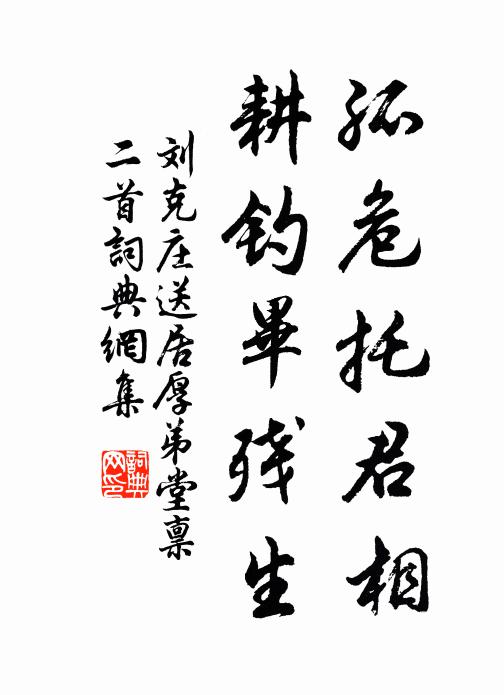 孤危托君相
耕钓畢残生
刘克庄送居厚弟堂禀
二首詞典網集
詞典网印